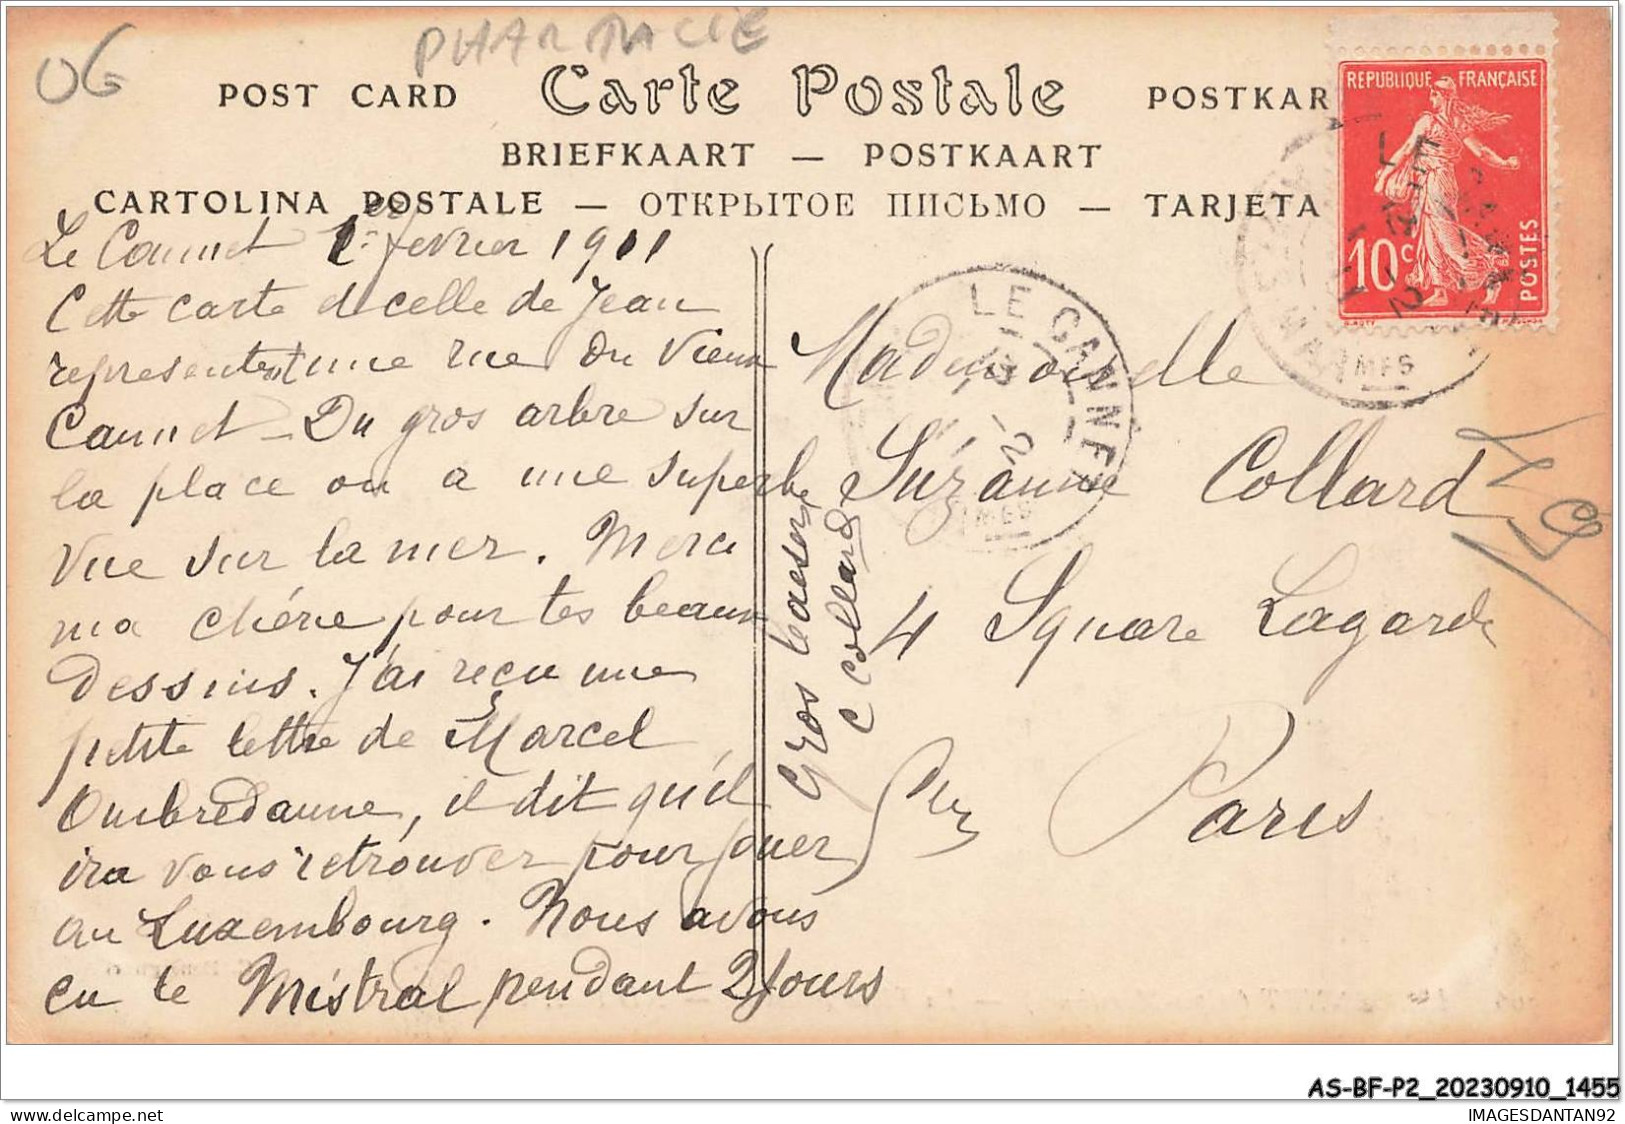 06
PHARMACIE
POST CARD Carte Postale POSTKAR
BRIEFKAART — POSTKAART
CARTOLINA POSTALE — ОТКРЫТОЕ ПИСЬМО — TARJETA
REPUBLIQUE FRANÇAISE
10c
POSTES
LE CANNET
Le Cannet 1er février 1911
Cette carte et celle de Jean
représentent une rue du Vieux
Cannet - Du gros arbre sur
la place on a une superbe
vue sur la mer. Merci
ma chérie pour tes beaux
dessins. J'ai reçu une
petite lettre de Marcel
Ombrédanne, il dit qu'il
ira vous retrouver pour jouer
au Luxembourg. Nous avons
eu le Mistral pendant 2 jours
Gros baisers
C Collard
Mademoiselle
Suzanne Collard
4 Square Lagarde
Paris
AS-BF-P2_20230910_1455
IMAGESDANTAN92